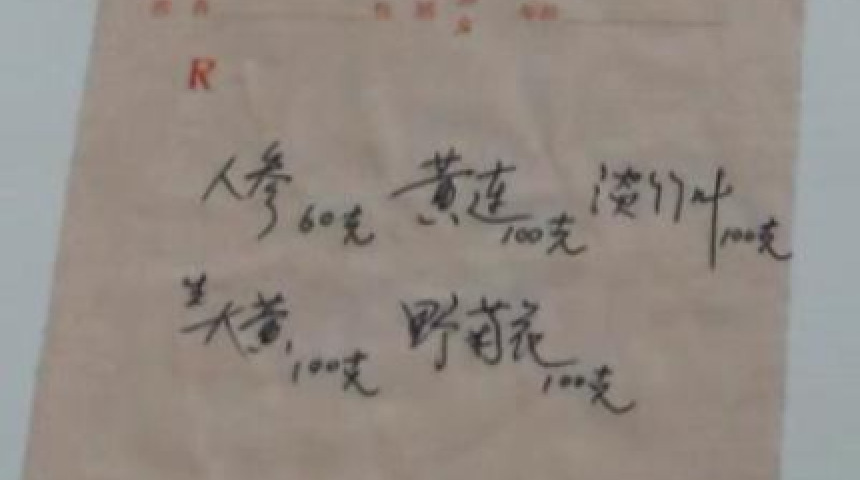 姓名 性别 年龄
R
人参60克 黄连100克 淡竹叶100克
生大黄100克 野菊花100克